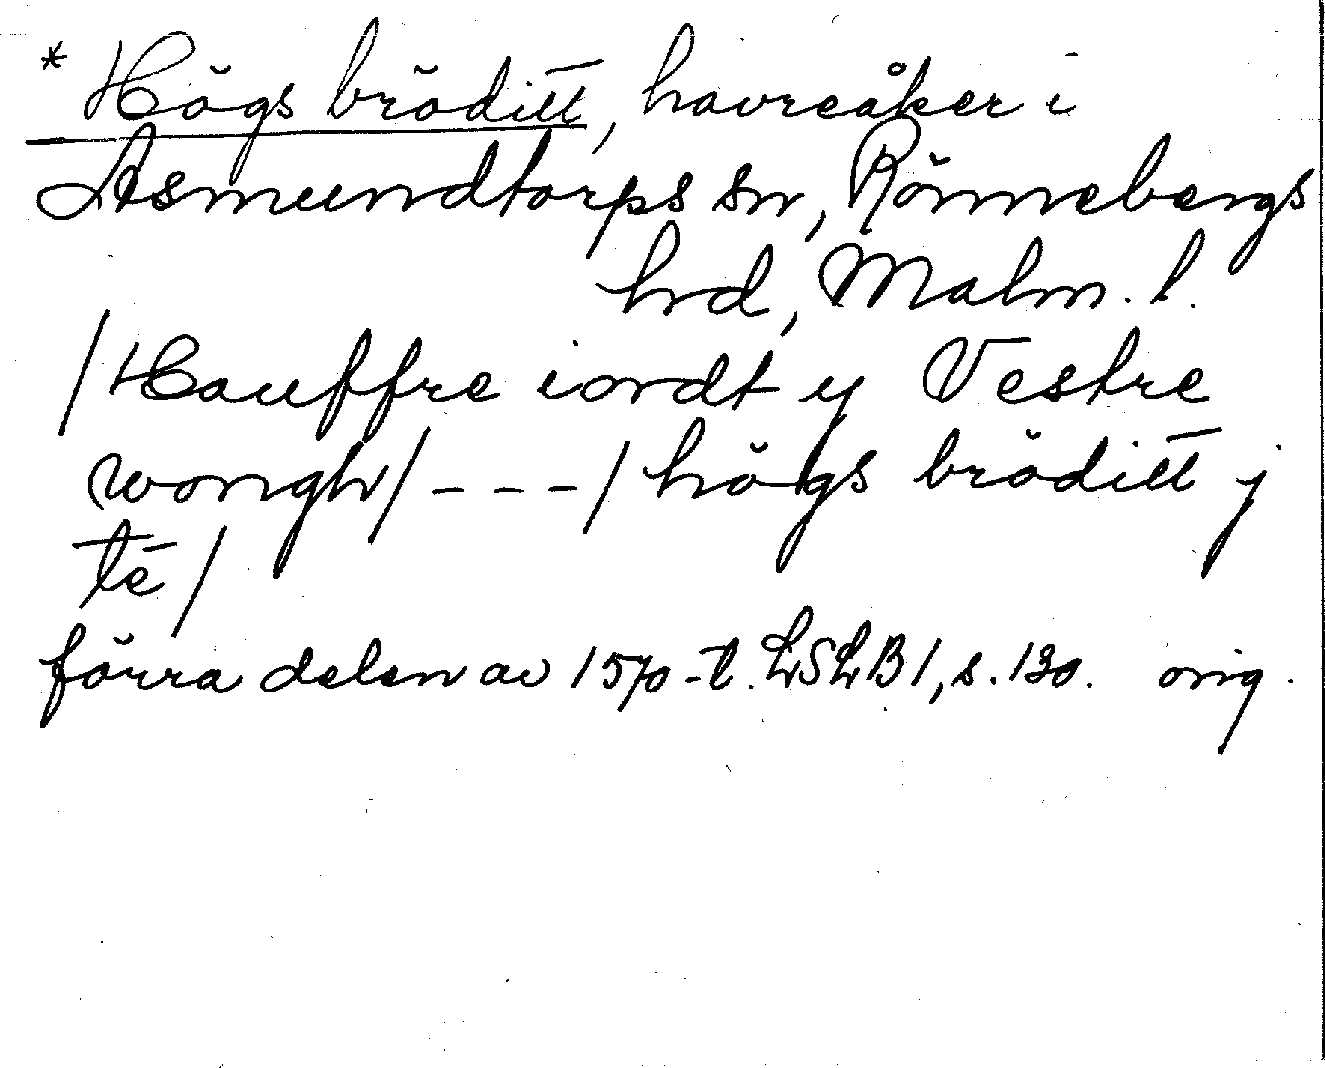 * Högs bröditt, havreåker i
Asmundtorps sn, Rönnebergs
hd, Malm. l.
/Hauffre iordt y Vestre
wongh/ - - - / högs bröditt y
té/
förra delen av 1570-t. LSLB1, s. 130. orig.